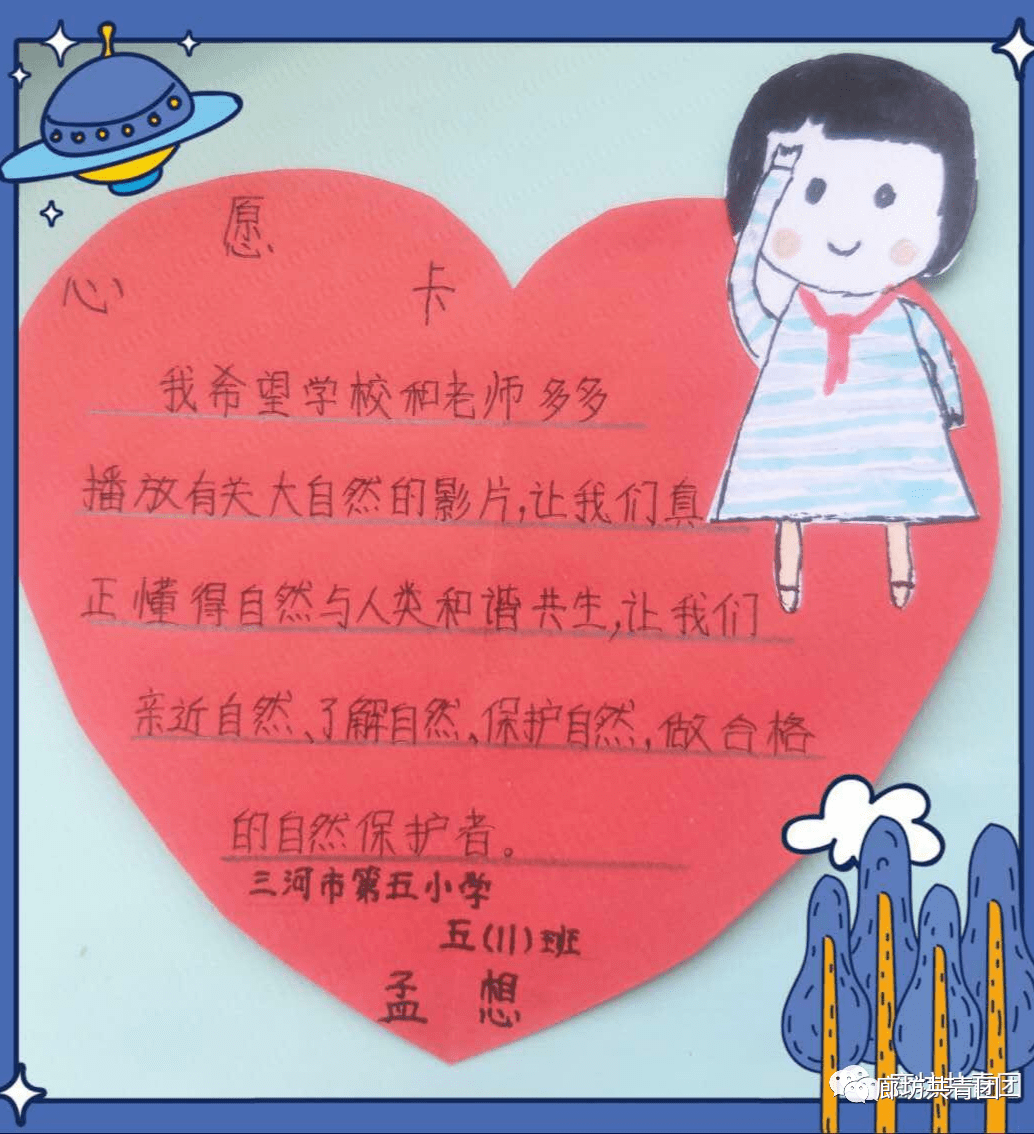 心愿卡
我希望学校和老师多多
播放有关大自然的影片,让我们真
正懂得自然与人类和谐共生,让我们
亲近自然、了解自然、保护自然,做合格
的自然保护者。
三河市第五小学
五(11)班
孟想
廊坊共青团